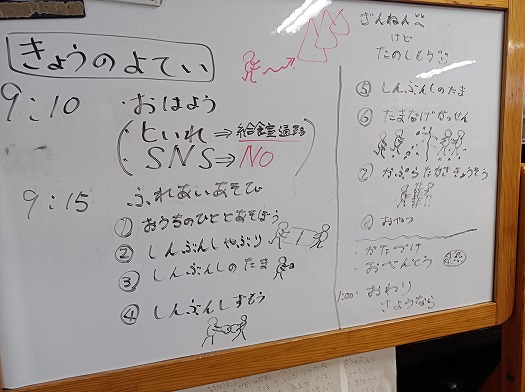 きょうのよてい
9:10 ・おはよう
(・といれ⇒給食室通路
・SNS⇒No)
9:15 ふれあいあそび
① おうちのひととあそぼう
② しんぶんしやぶり
③ しんぶんしのたま
④ しんぶんしずもう
ざんねん
けど
たのしもう
⑤ しんぶんしのたま
⑥ たまなげがっせん
⑦ かぷらたかさきょうそう
おやつ
・かたづけ
・おべんとう
1:00・おわり
さようなら